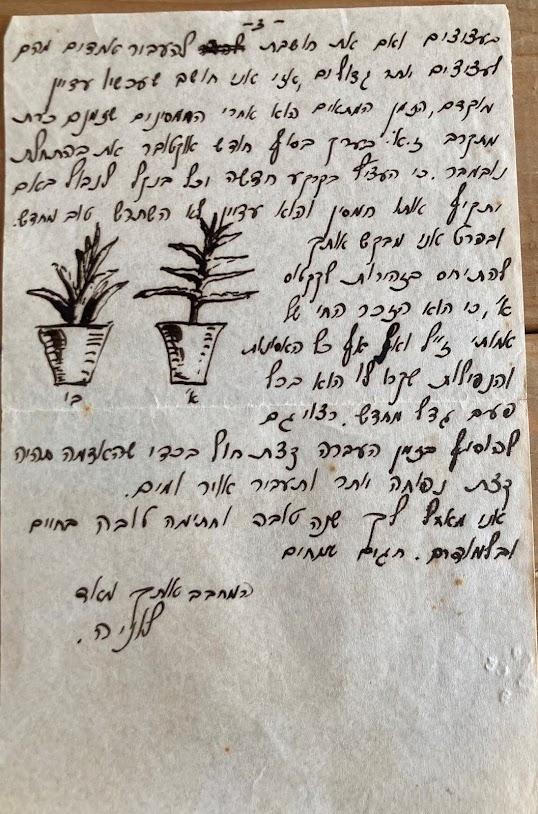 -3-
בעציצים ואם את חושבת להעבור אחדים מהם
לעציצים יותר גדולים, אזי אני חושב שעכשיו עדיין
מוקדם, הזמן המתאים הוא אחרי החמסינים שזמנם כעת
מתקרב ז.א. בערך בסוף חודש אוקטובר או בהתחלת
נובמבר. כי העציץ בקרקע חדשה וכל בנקל לנבול באם
יתקיף אותו חמסין והוא עדיין לא השתרש טוב מחדש.
ובפרט אני מבקש אותך
להתיחס בזהירות לקקטוס
א', כי הוא הזכר החי של
אמותי ז"ל ואף כל האסונות
והנפילות שקרו לו הוא בכל
פעם גדל מחדש. רצוי גם
ב' א'
להוסיף בזמן העברה קצת חול בכדי שהאדמה תהיה
קצת נפוחה יותר ותעביר אויר ומים.
אני מאחל לך שנה טובה וחתימה טובה בחיים
ובלמודים. חגים שמחים
המחבב אותך מאד